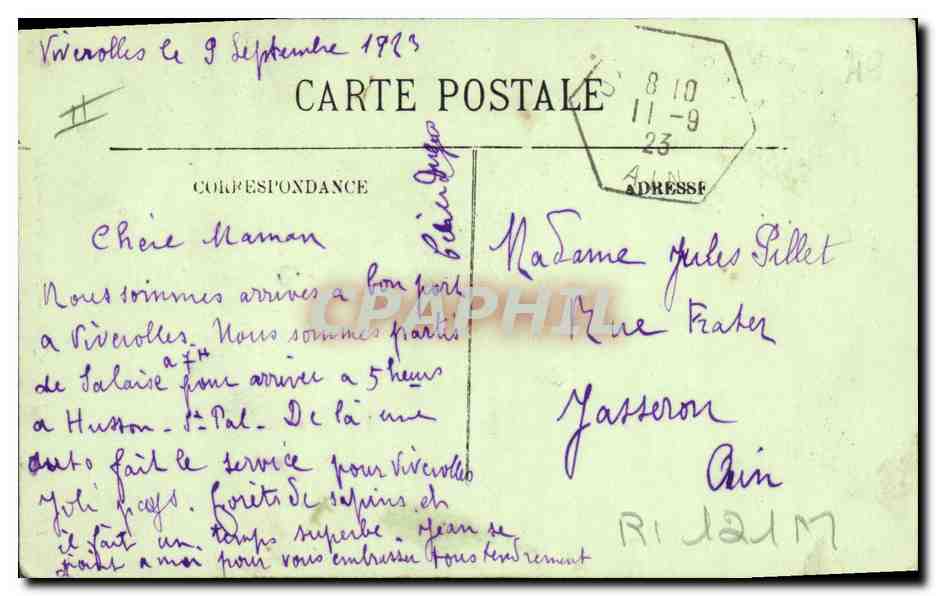 Viverolles le 9 Septembre 1923
CARTE POSTALE
8 10
11 -9
23
AIN
CORRESPONDANCE
ADRESSE
Chère Maman
Nous sommes arrivés a bon port
a Viverolles. Nous sommes partis
de Salaise a 7H pour arriver a 5 heurs
a Husson - St Pal - De là une
auto fait le service pour Viverolles
Joli pays. forêts de sapins et
il fait un temps superbe. Jean se
joint a moi pour vous embrasser tous tendrement
Madame Jules Pillet
Rue Frater
Jasseron
Ain
RI 121M
CPAPHIL